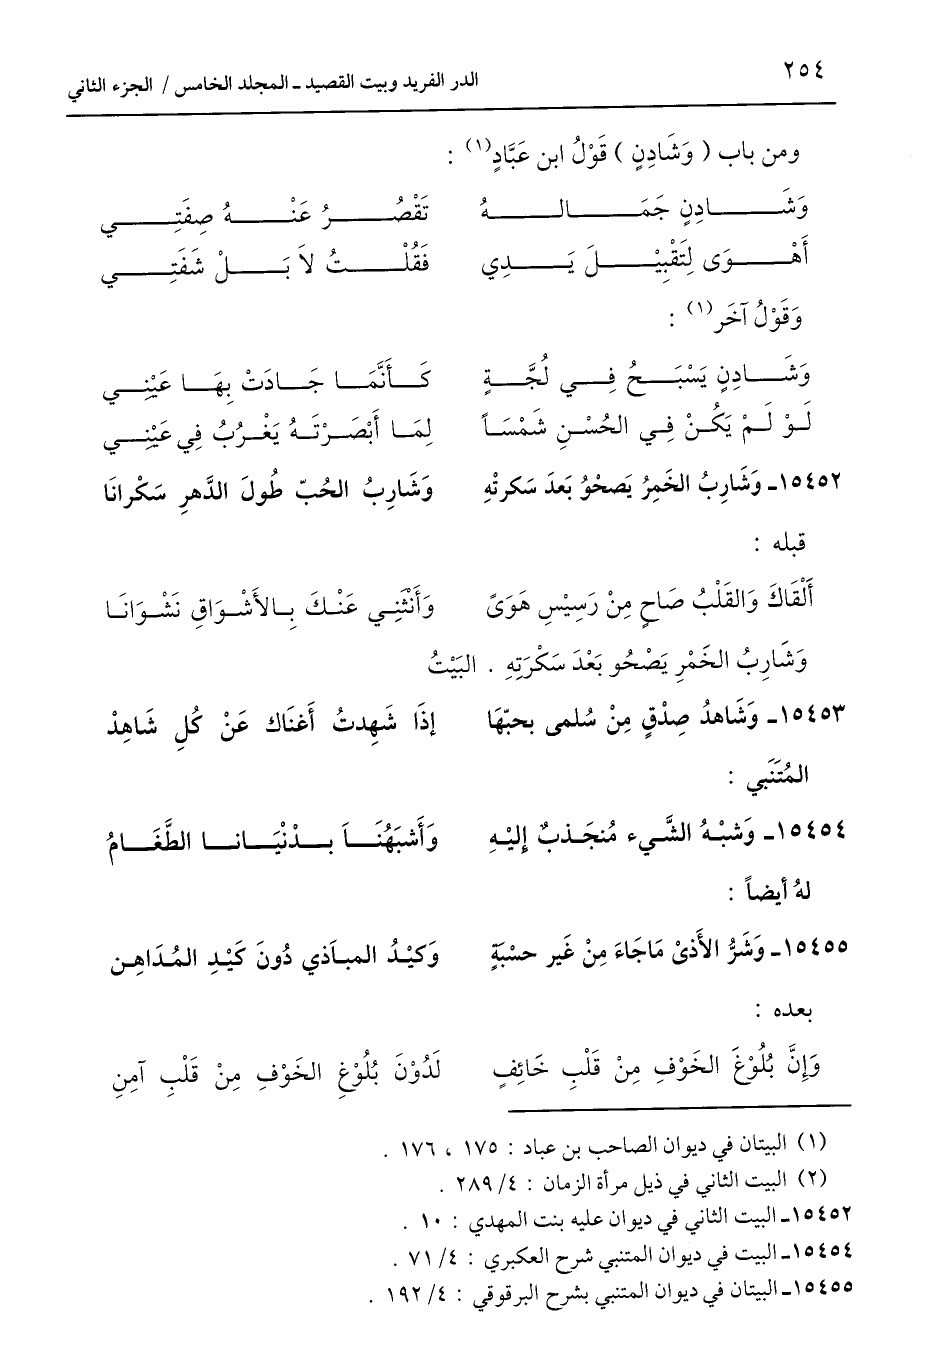 ٢٥٤
الدر الفريد وبيت القصيد ـ المجلد الخامس / الجزء الثاني
ومن باب ( وَشَادِنٍ ) قَوْلُ ابن عَبَّادٍ(١) :
وَشَادِنٍ جَمَالهُ تَقْصُرُ عَنْهُ صِفَتِي
أَهْوَى لِتَقْبِيْلَ يَدِي فَقُلْتُ لاَ بَلْ شَفَتِي
وَقَوْلُ آخَر(١) :
وَشَادِنٍ يَسْبَحُ فِي لُجَّةٍ كَأَنَّمَا جَادَتْ بِهَا عَيْنِي
لَوْ لَمْ يَكُنْ فِي الحُسْنِ شَمْسَاً لِمَا أَبْصَرْتَهُ يَغْرُبُ فِي عَيْنِي
١٥٤٥٢ـ وَشَارِبُ الخَمِرُ يَصحُوُ بَعدَ سَكرتْهِ وَشَارِبُ الحُبّ طُولَ الدَّهرِ سَكْرانَا
قبله :
أَلْقَاكَ وَالقَلْبُ صَاحٍ مِنْ رَسِيْسِ هَوَىً وَأَنْثَنِي عَنْكَ بِالأَشْوَاقِ نَشْوَانَا
وَشَارِبُ الخَمْرِ يَصْحُو بَعْدَ سَكْرَتِهِ . البَيْتُ
١٥٤٥٣ـ وَشَاهدُ صِدْقٍ مِنْ سُلمى بحبّهَا إذَا شَهِدتُ أغنَاك عَنْ كُلِ شَاهِدْ
المُتَنَبي :
١٥٤٥٤ـ وَشبْهُ الشَّيء مُنجَذبٌ إلَيْهِ وَأَشبَهُنَاَ بدْنْيَانا الطَّغَامُ
لهُ أيضاً :
١٥٤٥٥ـ وَشَرُّ الأَذىْ مَاجَاءَ مِنْ غَير حسْبَةٍ وَكيْدُ المبَاذي دُونَ كَيْدِ المُدَاهِن
بعده :
وَإِنَّ بُلُوْغَ الخَوْفِ مِنْ قَلْبِ خَائِفٍ لَدُوْنَ بُلُوْغِ الخَوْفِ مِنْ قَلْبِ آمِنِ
(١) البيتان في ديوان الصاحب بن عباد : ١٧٥ ، ١٧٦ .
(٢) البيت الثاني في ذيل مرأة الزمان : ٤/ ٢٨٩ .
١٥٤٥٢ـ البيت الثاني في ديوان عليه بنت المهدي : ١٠ .
١٥٤٥٤ـ البيت في ديوان المتنبي شرح العكبري : ٤/ ٧١ .
١٥٤٥٥ـ البيتان في ديوان المتنبي بشرح البرقوقي : ٤/ ١٩٢ .